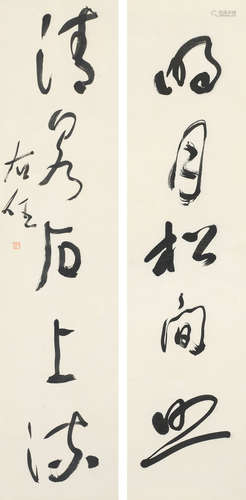 明月松間照
清泉石上流
右任